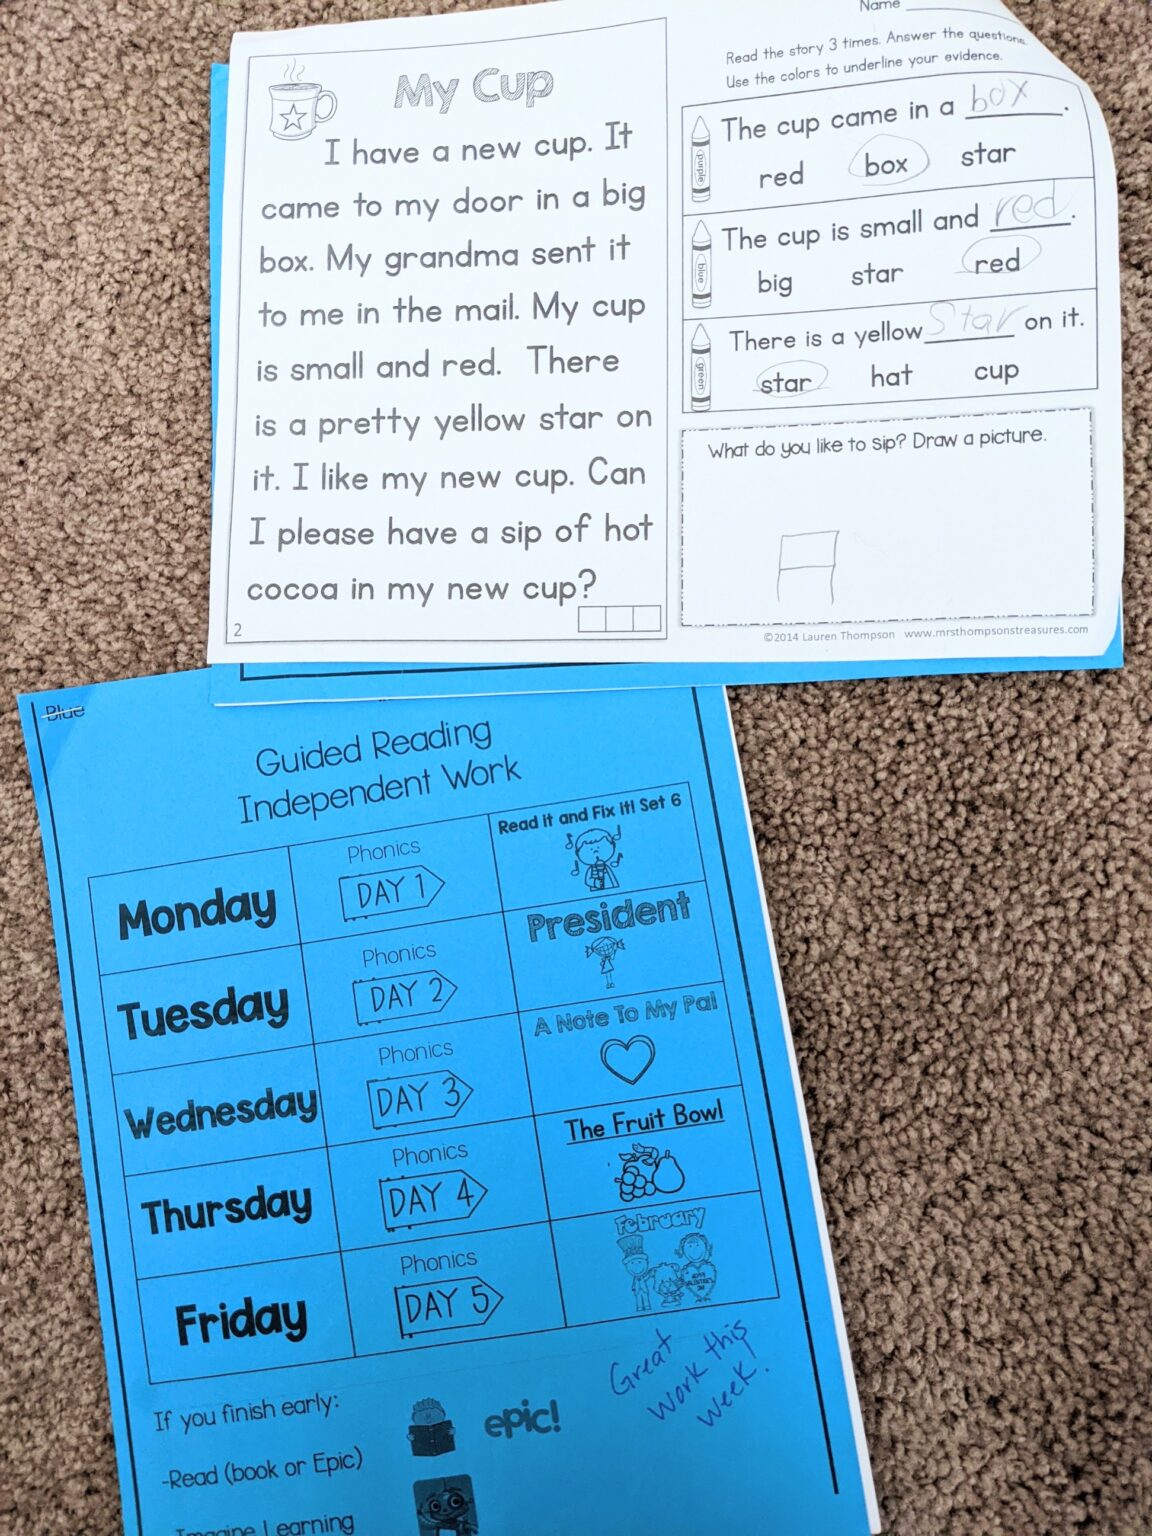 My Cup
I have a new cup. It
came to my door in a big
box. My grandma sent it
to me in the mail. My cup
is small and red. There
is a pretty yellow star on
it. I like my new cup. Can
I please have a sip of hot
cocoa in my new cup?
2
Name
Read the story 3 times. Answer the questions.
Use the colors to underline your evidence.
purple
The cup came in a box.
red box star
blue
The cup is small and red.
big star red
green
There is a yellow star on it.
star hat cup
What do you like to sip? Draw a picture.
©2014 Lauren Thompson www.mrsthompsonstreasures.com
Blue
Guided Reading
Independent Work
Monday
Phonics
DAY 1
Read it and Fix it! Set 6
Tuesday
Phonics
DAY 2
President
Wednesday
Phonics
DAY 3
A Note To My Pal
Thursday
Phonics
DAY 4
The Fruit Bowl
Friday
Phonics
DAY 5
February
Great
work this
week!
If you finish early:
epic!
-Read (book or Epic)
Imagine Learning